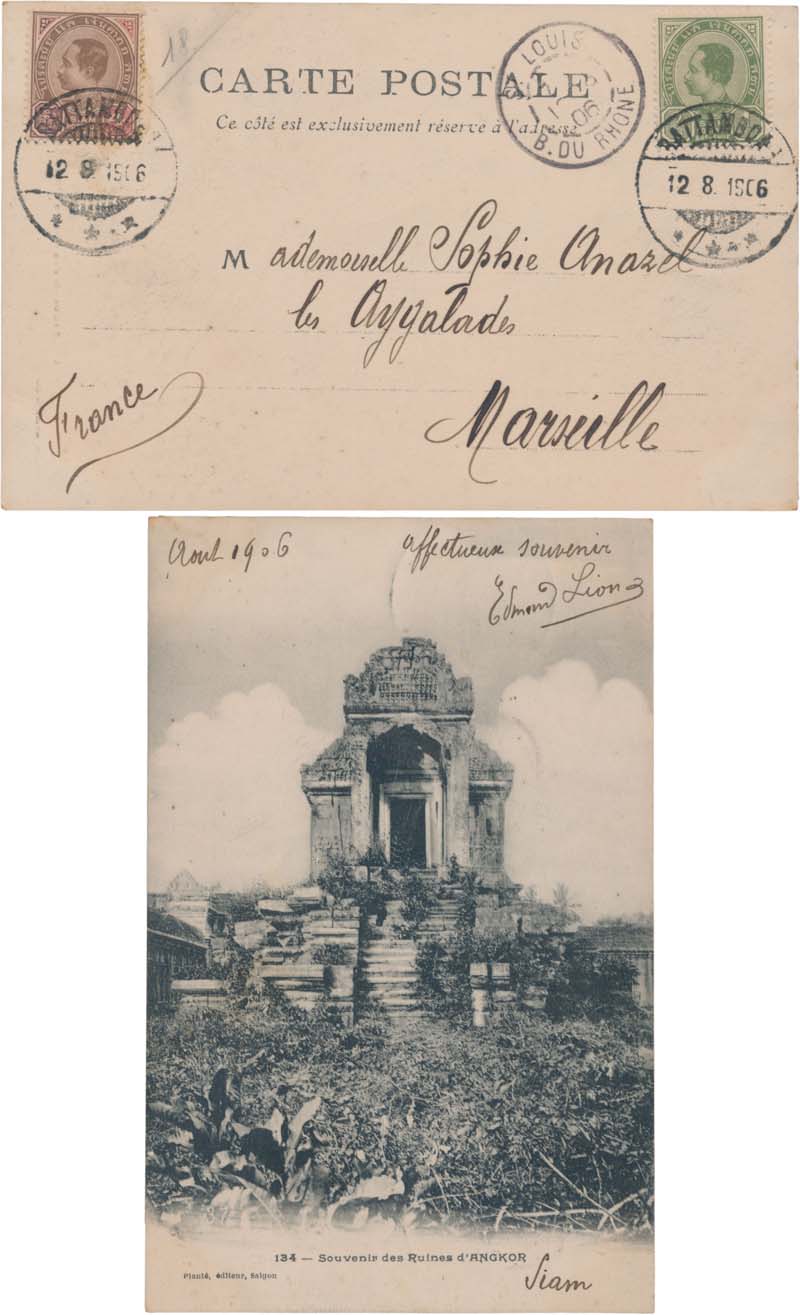 18
CARTE POSTALE
Ce côté est exclusivement réservé à l'adresse
ST LOUIS
06
B. DU RHÔNE
BATTAMBONG 1
12 8. 1906
BATTAMBONG 1
12 8. 1906
Mademoiselle Sophie Anazel
les Aygalades
Marseille
France
Aout 1906
affectueux souvenir
Edmond Lion
134 — Souvenir des Ruines d'ANGKOR
Planté, éditeur, Saigon
Siam